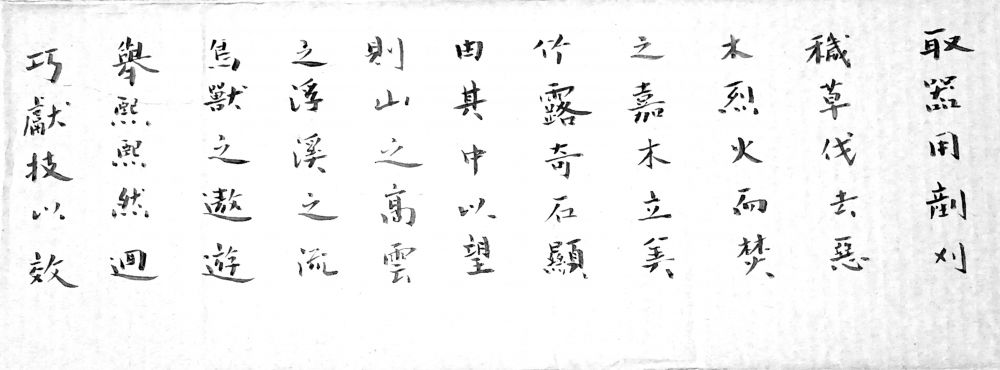 取器用剷刈
穢草伐去惡
木烈火而焚
之嘉木立美
竹露奇石顯
由其中以望
則山之高雲
之浮溪之流
鳥獸之遨遊
舉熙熙然迴
巧獻技以效